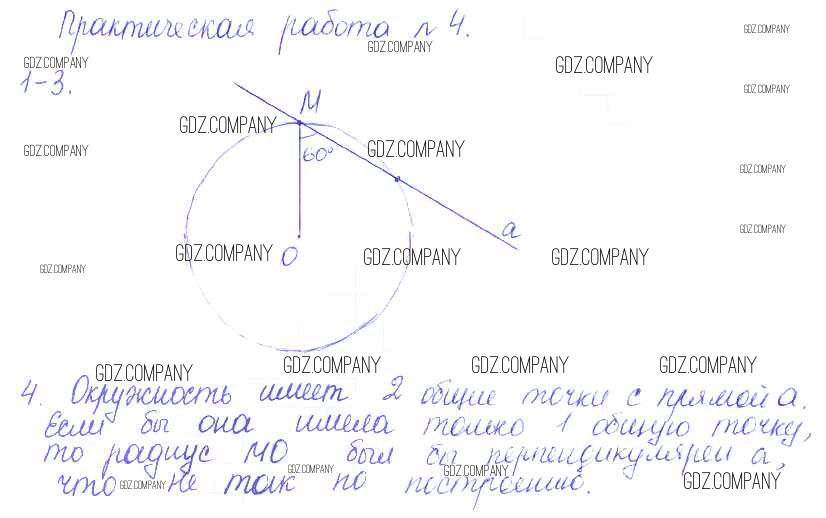 Практическая работа №4.
GDZ.COMPANY
GDZ.COMPANY
GDZ.COMPANY
GDZ.COMPANY
1-3.
GDZ.COMPANY
М
GDZ.COMPANY
GDZ.COMPANY
GDZ.COMPANY
60°
GDZ.COMPANY
GDZ.COMPANY
a
GDZ.COMPANY
GDZ.COMPANY
O
GDZ.COMPANY
GDZ.COMPANY
GDZ.COMPANY
GDZ.COMPANY
GDZ.COMPANY
GDZ.COMPANY
GDZ.COMPANY
4. Окружность имеет 2 общие точки с прямой а.
Если бы она имела только 1 общую точку,
то радиус МО был бы перпендикулярен а,
GDZ.COMPANY
GDZ.COMPANY
что не так по построению.
GDZ.COMPANY
GDZ.COMPANY